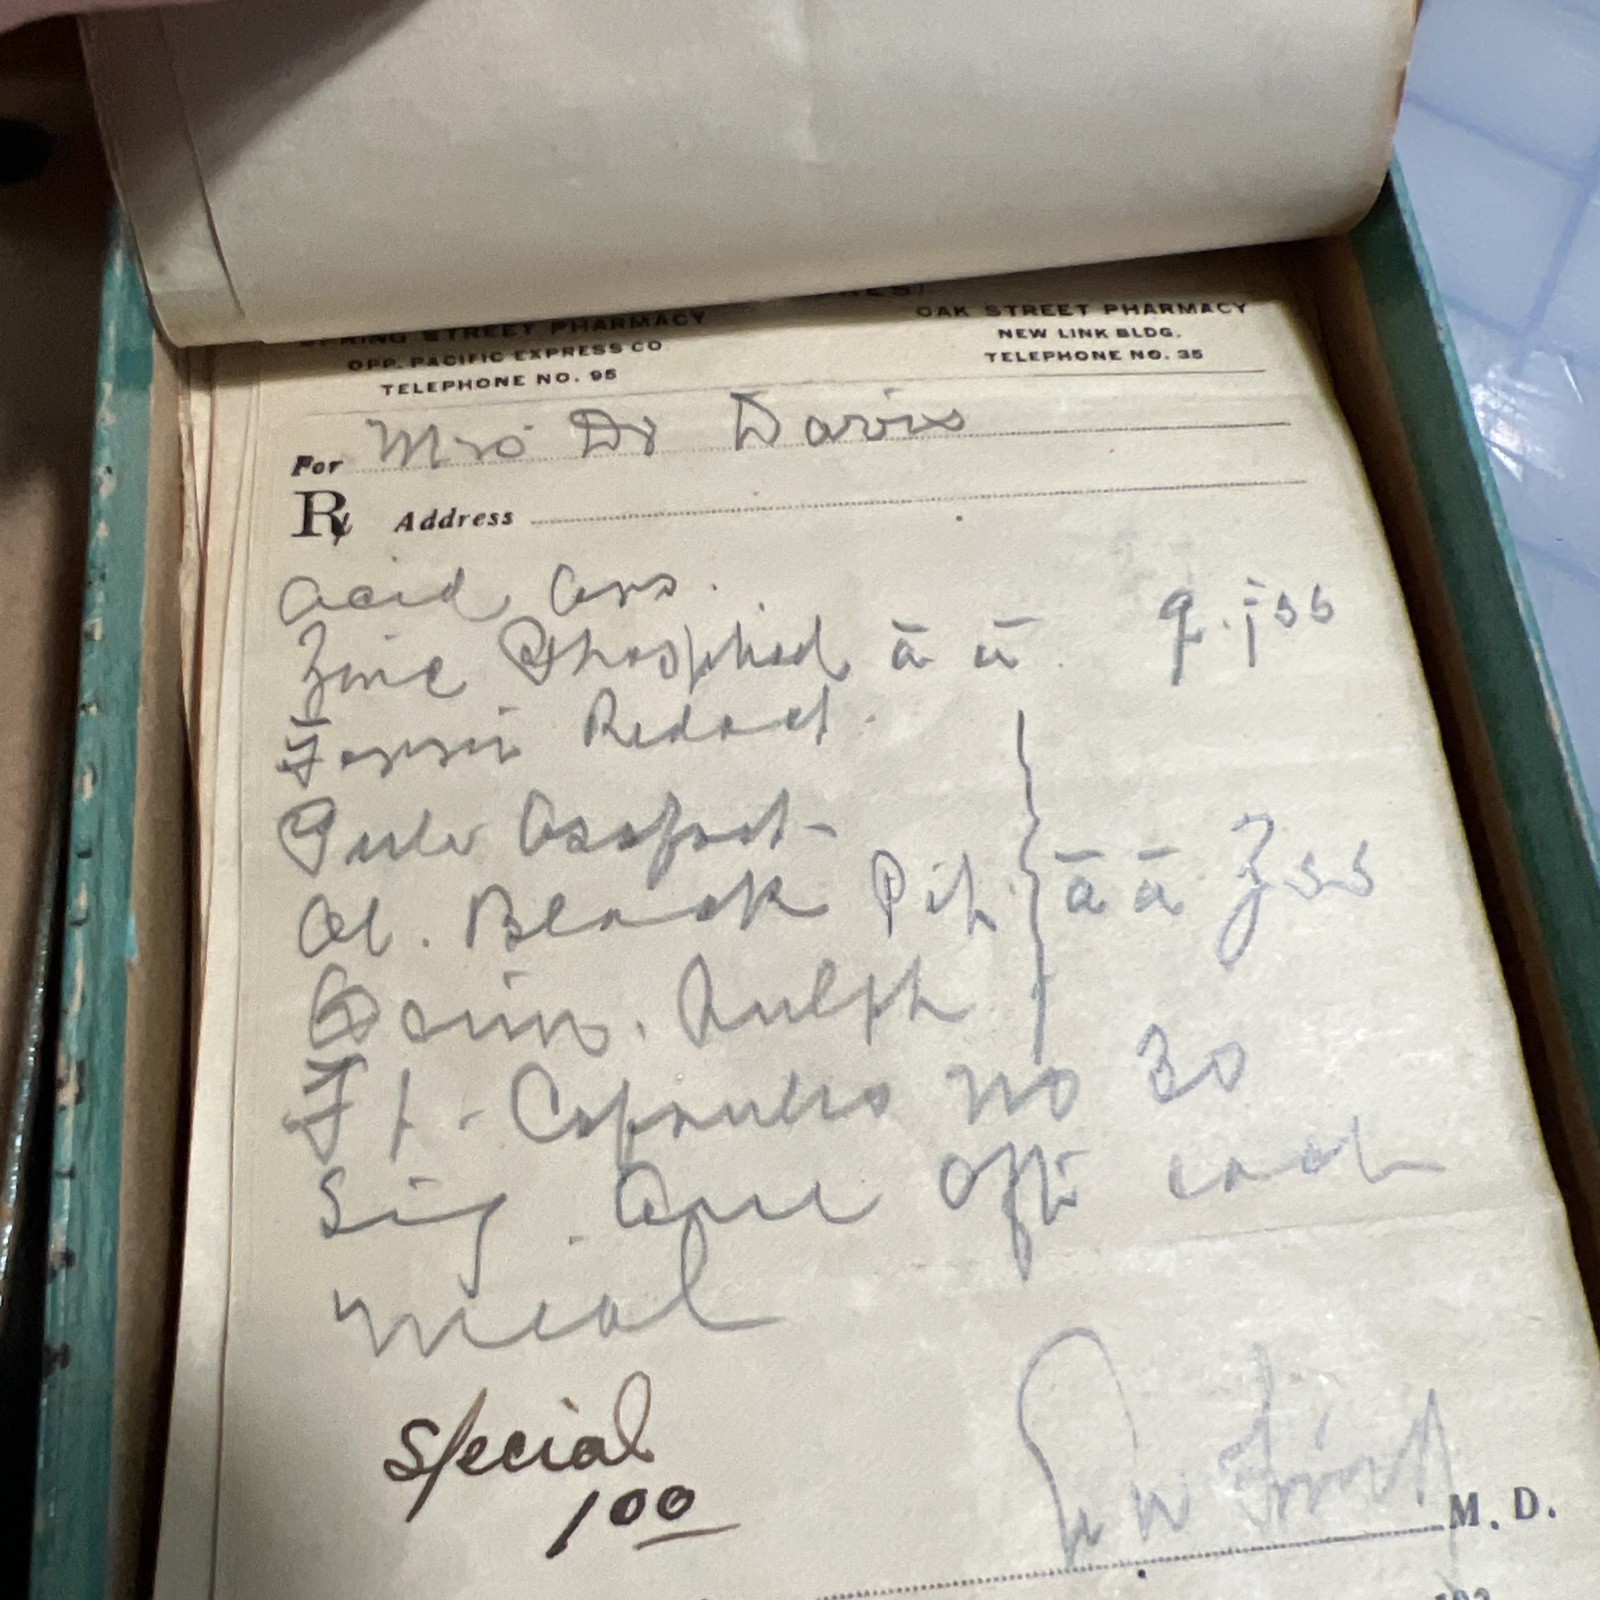 SPRING STREET PHARMACY
OPP. PACIFIC EXPRESS CO.
TELEPHONE NO. 95
OAK STREET PHARMACY
NEW LINK BLDG.
TELEPHONE NO. 35
For Mrs Dr Davis
Rx Address
Acid Ars.
Zinc Phosphid āā. g. jss
Ferri Redact.
Pulv Asafoet-
Ol. Black Pip āā ʒss
Quin. Sulph
Ft. Capsules No 30
Sig. One after each
meal
Special
1 00
M. D.